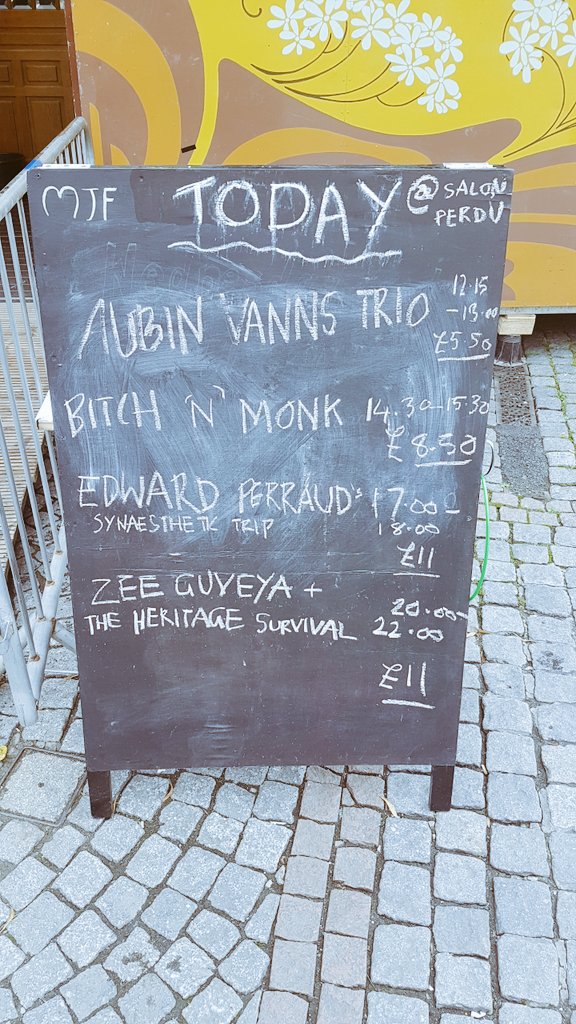 MJF TODAY @ SALON PERDU
AUBIN VANNS TRIO 12.15 - 13.00
£5.50
BITCH 'N' MONK 14.30-15.30
£8.50
EDWARD PERRAUD's 17.00-
SYNAESTHETIC TRIP 18.00
£11
ZEE GUVEYA + 20.00-
THE HERITAGE SURVIVAL 22.00
£11